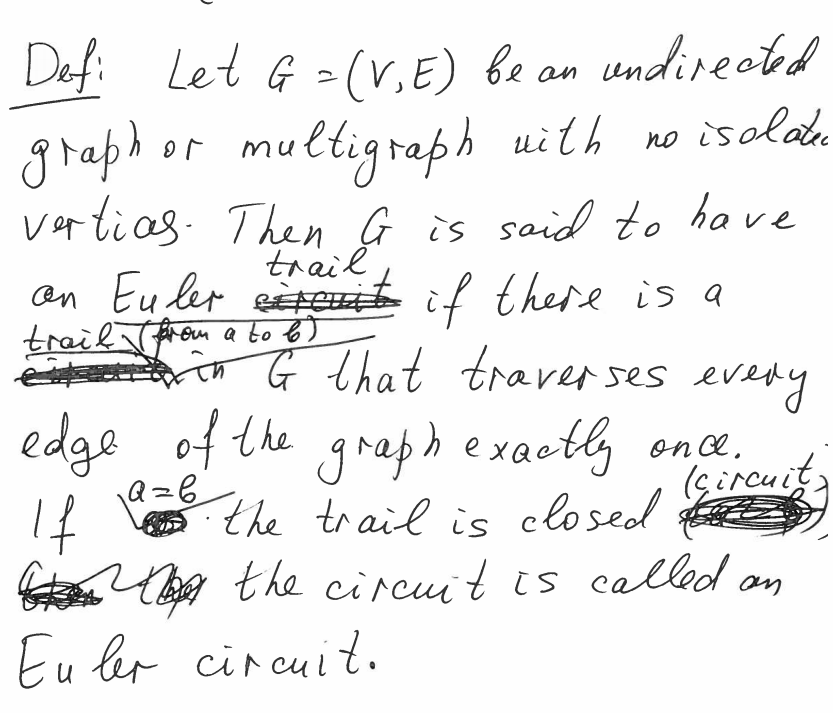 Def: Let G = (V, E) be an undirected
graph or multigraph with no isolated
vertias. Then G is said to have
trail
an Euler circuit if there is a
trail (from a to b)
in G that traverses every
edge of the graph exactly once.
a = b (circuit)
If the trail is closed
the circuit is called an
Euler circuit.